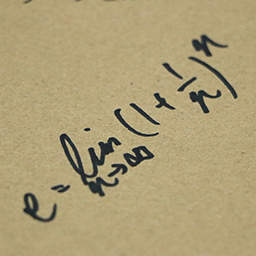 e = lim n→∞ (1 + 1/n)^n